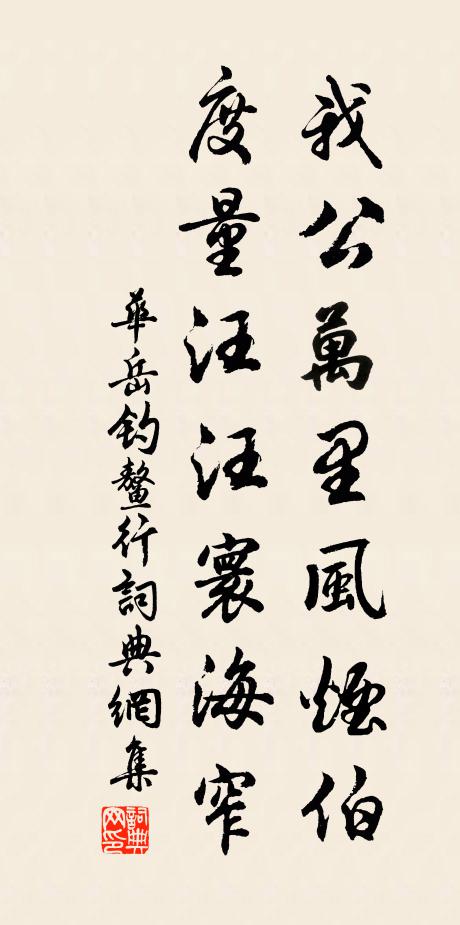 我公萬里風煙伯
度量汪汪寰海窄
華岳釣鼇行詞典網集
詞典網印